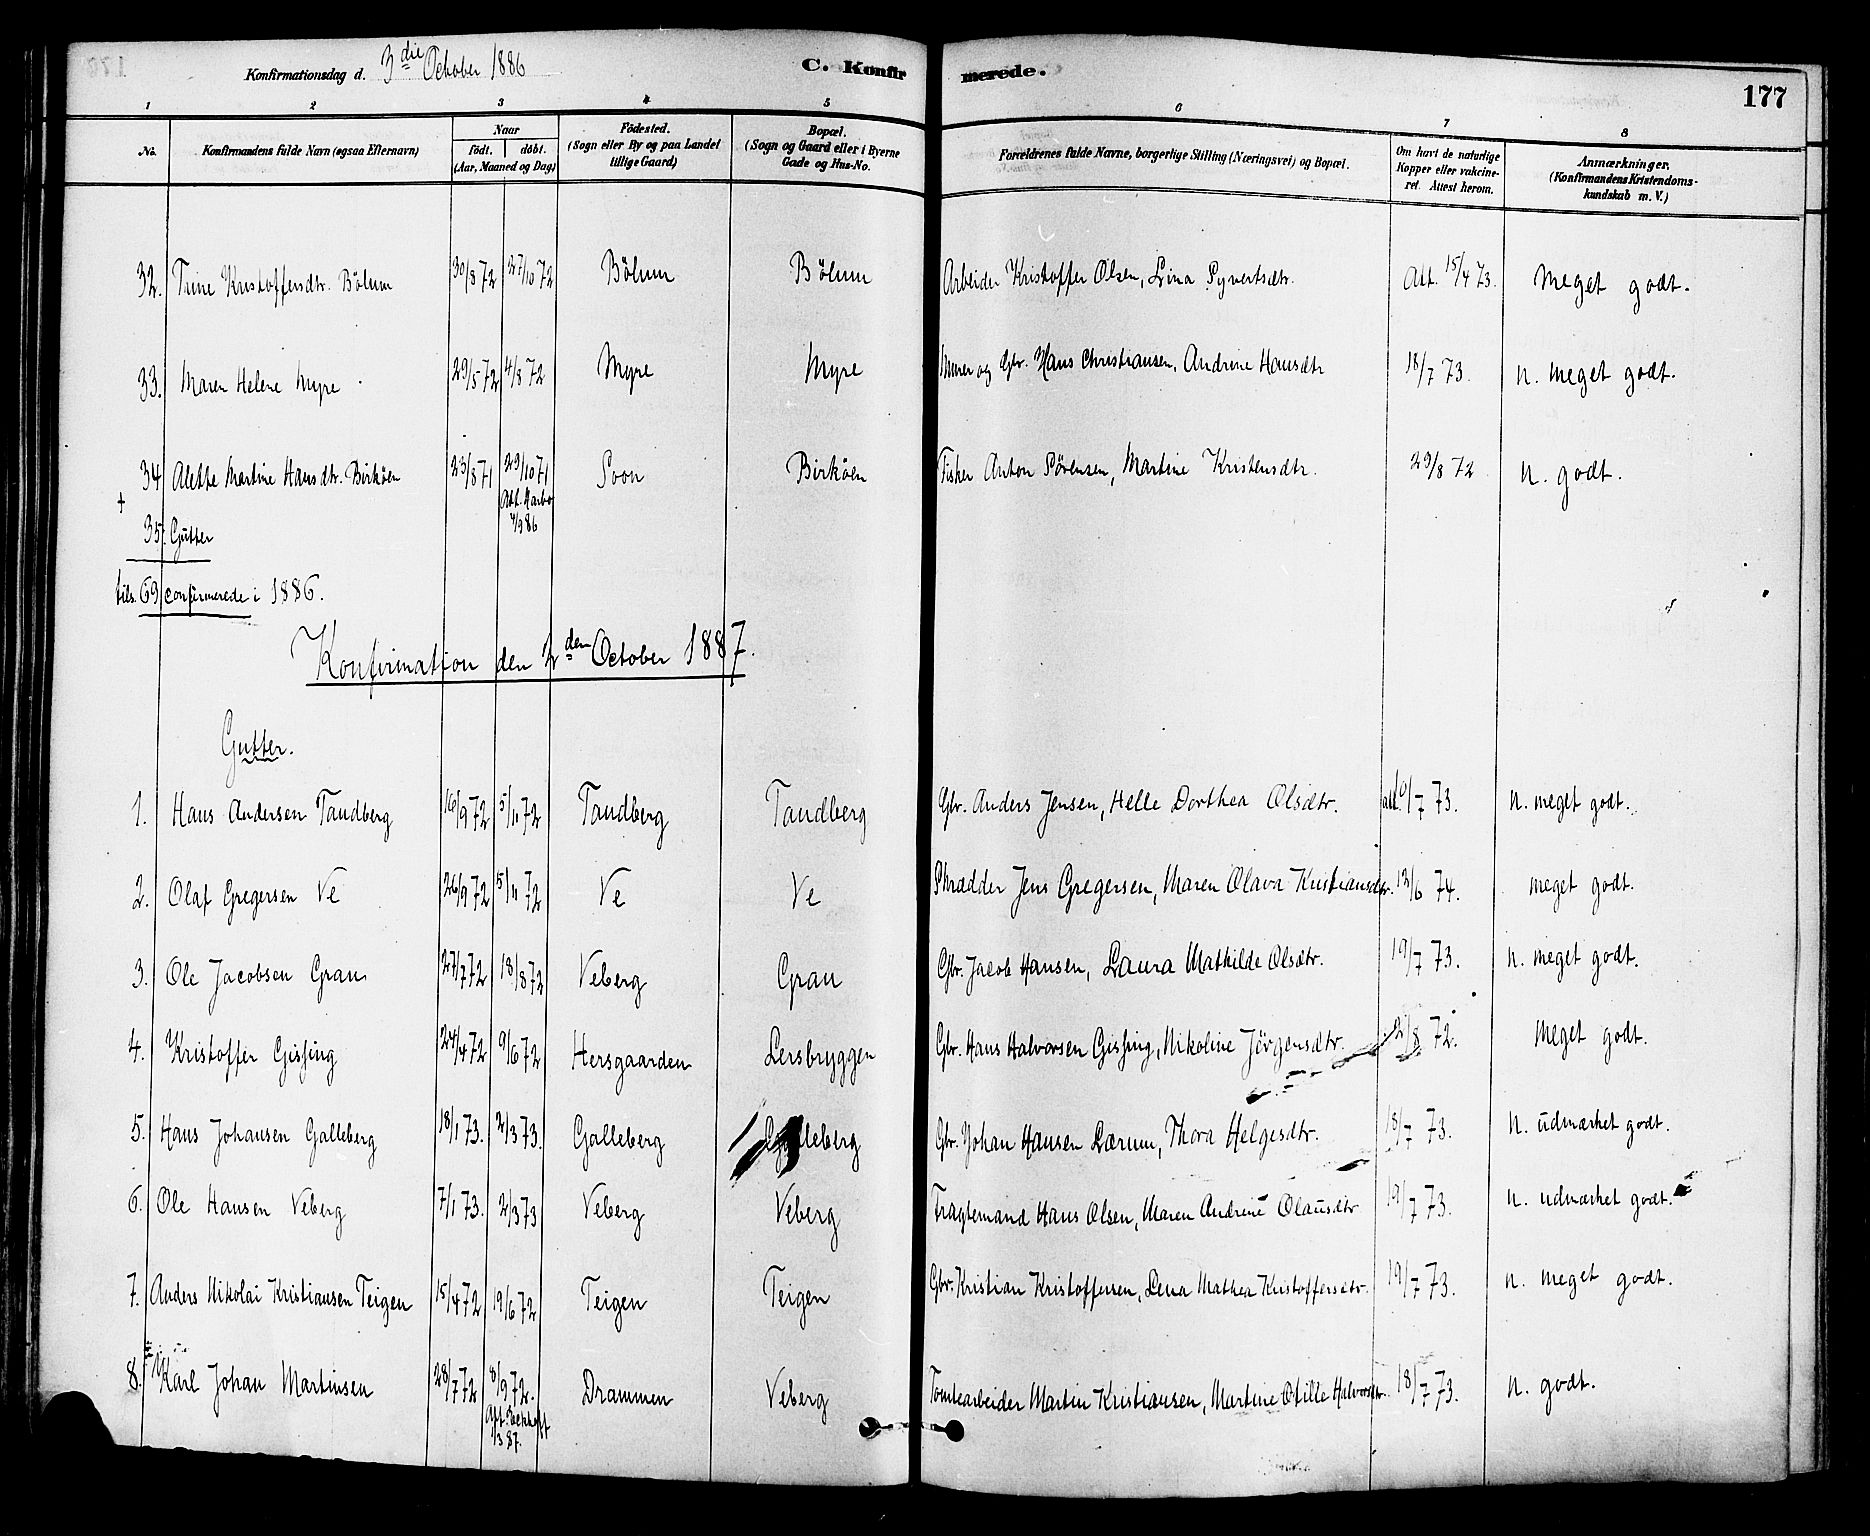 Konfirmationsdag d. 3die October 1886
C. Konfirmerede.
177
1 2 3 4 5 6 7 8
No. Konfirmandens fulde Navn (ogsaa Efternavn) Naar födt. döbt. (Aar, Maaned og Dag) Födested. (Sogn eller By og paa Landet tillige Gaard) Bopæl. (Sogn og Gaard eller i Byerne Gade og Hus-No. Forældrenes fulde Navne, borgerlige Stilling (Næringsvei) og Bopæl. Om havt de naturlige Kopper eller vakcineret. Attest herom. Anmærkninger. (Konfirmandens Kristendomskundskab m. V.)
32. Trine Kristoffersdtr. Bölum 30/8 72 27/10 72 Bölum Bölum Arbeider Kristoffer Olsen, Lina Syvertsdtr. Att. 15/4 73. Meget godt.
33. Maren Helene Myre 29/5 72 4/8 72 Myre Myre Murer og Gbr. Hans Christiansen, Andrine Hansdtr 18/7 73. N. meget godt.
34 Alette Martine Hansdtr. Birköen 23/8 71 29/10 71 Soon Birköen Fisker Anton Sörensen, Martine Kristensdtr. 29/8 72 N. godt.
Att. 4/9 86
+
35. Gutter
tils. 69 confirmerede i 1886.
Konfirmation den 2den October 1887.
Gutter.
1. Hans Andersen Tandberg 16/9 72 5/11 72 Tandberg Tandberg Gbr. Anders Jensen, Helle Dorthea Olsdtr. att. /7 73. N. meget godt.
2. Olaf Gregersen Ve 26/9 72 5/11 72 Ve Ve Skrædder Jens Gregersen, Maren Olava Kristiansdtr. 12/6 74. meget godt.
3. Ole Jacobsen Gran 27/7 72 18/8 72 Veberg Gran Gbr. Jacob Hansen, Laura Mathilde Olsdtr. 19/7 73. N. meget godt.
4. Kristoffer Gissing 24/4 72 9/6 72 Hersgaarden Lersbryggen Gbr. Hans Halvorsen Gissing, Nikoline Jörgensdtr. 21/8 72. Meget godt.
5. Hans Johansen Galleberg 18/1 73. 2/3 73. Galleberg Galleberg Gbr. Johan Hansen Lærum, Thora Helgesdtr. 18/7 73. N. udmærket godt.
6. Ole Hansen Veberg 7/1 73. 2/3 73 Veberg Veberg Fragtemand Hans Olsen, Maren Andrine Olausdtr 19/7 73. N. udmærket godt.
7. Anders Nikolai Kristiansen Teigen 15/4 72 19/6 72 Teigen Teigen Gbr. Kristian Kristoffersen, Lena Mathea Kristoffersdtr. 19/7 73. N. meget godt.
8. Karl Johan Martinsen 28/7 72 8/9 72. Drammen Veberg Tomtearbeider Martin Kristiansen, Martine Otilie Halvorsdtr. 18/7 73. N. godt.
/3 87.